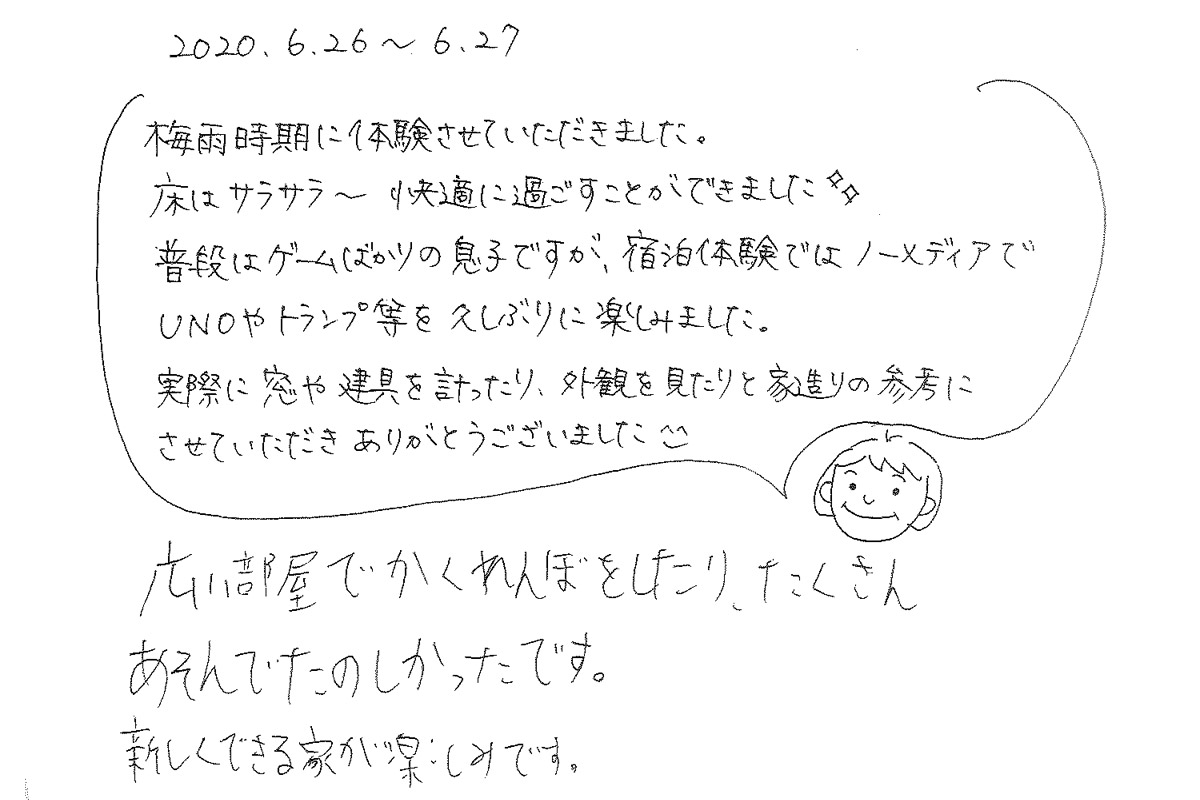 2020.6.26〜6.27
梅雨時期に体験させていただきました。
床はサラサラ〜 快適に過ごすことができました
普段はゲームばかりの息子ですが、宿泊体験ではノーメディアで
UNOやトランプ等を久しぶりに楽しみました。
実際に窓や建具を計ったり、外観を見たりと家造りの参考に
させていただきありがとうございました
広い部屋でかくれんぼをしたり、たくさん
あそんでたのしかったです。
新しくできる家が楽しみです。